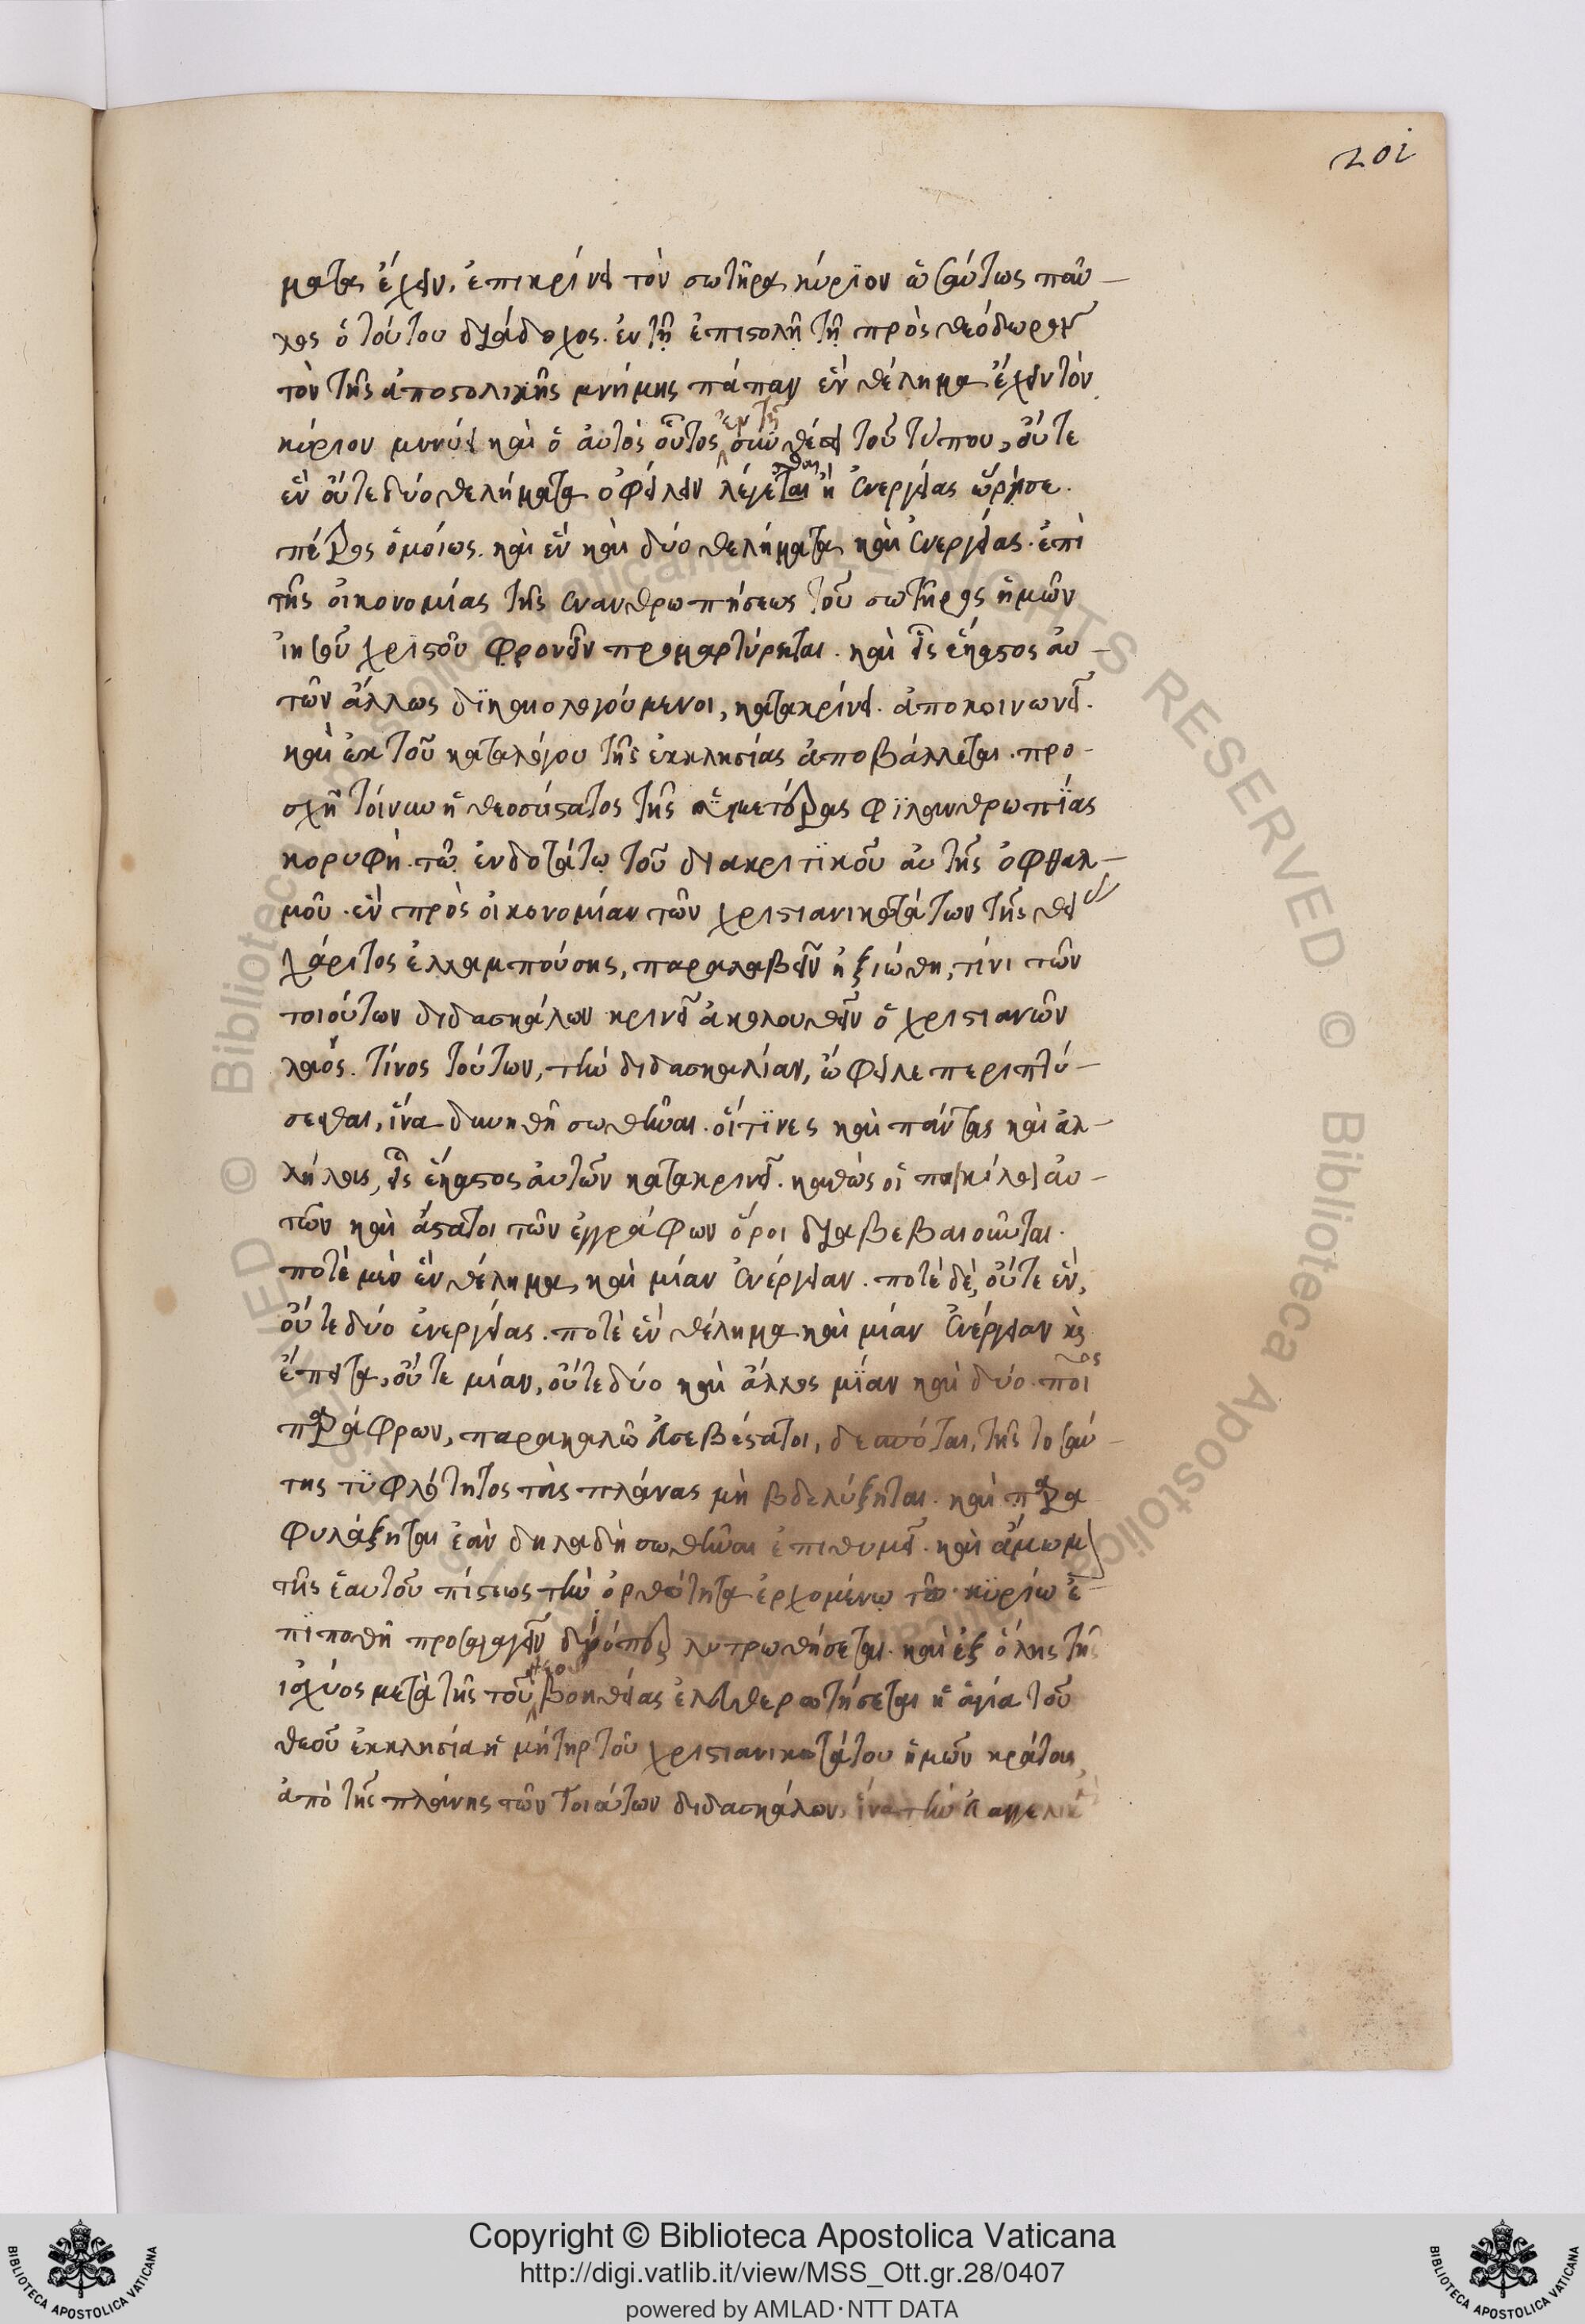 201
ματα ἔχειν. ἐπικρίνει τὸν σωτῆρα κύριον ὡσαύτως παῦ-
λος ὁ τούτου διάδοχος. ἐν τῇ ἐπιστολῇ τῇ πρὸς θεόδωρον
τὸν τῆς ἀποστολικῆς μνήμης πάπαν ἓν θέλημα ἔχειν τὸν
κύριον μηνύει καὶ ὁ αὐτὸς οὗτος ἐν τῇ συνθέσει τοῦ τύπου, οὔτε
ἓν οὔτε δύο θελήματα ὀφείλειν λέγεσθαι ἢ ἐνεργείας ὥρισε.
πέτρος ὁμοίως. καὶ ἓν καὶ δύο θελήματα καὶ ἐνεργείας. ἐπὶ
τῆς οἰκονομίας τῆς ἐνανθρωπήσεως τοῦ σωτῆρος ἡμῶν
ἰησοῦ χριστοῦ φρονεῖν προμαρτύρεται. καὶ εἷς ἕκαστος αὐ-
τῶν ἄλλως δικαιολογούμενοι, κατακρίνει. ἀποκοινωνεῖ.
καὶ ἐκ τοῦ καταλόγου τῆς ἐκκλησίας ἀποβάλλεται. προ-
σχῇ τοίνυν ἡ θεοσύστατος τῆς ἡμετέρας φιλανθρωπίας
κορυφὴ. τῷ ἐνδοτάτῳ τοῦ διακριτικοῦ αὐτῆς ὀφθαλ-
μοῦ. ἓν πρὸς οἰκονομίαν τῶν χριστιανικωτάτων τῆς θεί
χάριτος ἐλλαμπούσης, παραλαβεῖν ἠξιώθη, τίνι τῶν
τοιούτων διδασκάλων κρινεῖ ἀκολουθεῖν ὁ χριστιανῶν
λαός. τίνος τούτων, τὴν διδασκαλίαν, ὤφειλε περιπτύ-
σεσθαι, ἵνα δυνηθῇ σωθῆναι. οἵτινες καὶ πάντας καὶ ἀλ-
λήλοις, εἷς ἕκαστος αὐτῶν κατακρινεῖ. καθὼς οἱ ποικίλοι αὐ-
τῶν καὶ ἄστατοι τῶν ἐγγράφων ὅροι διαβεβαιοῦνται.
ποτὲ μὲν ἓν θέλημα, καὶ μίαν ἐνέργειαν. ποτὲ δὲ, οὔτε ἓν,
οὔτε δύο ἐνεργείας. ποτὲ ἓν θέλημα καὶ μίαν ἐνέργειαν καὶ
ἔπειτα, οὔτε μίαν, οὔτε δύο καὶ ἄλλος μίαν καὶ δύο. ποῖος
παράφρων, παρακαλῶ ἀσεβέστατοι, δεσπόται, τῆς τοσαύ-
της τυφλότητος τὰς πλάνας μὴ βδελύξηται. καὶ παρα
φυλάξηται ἐὰν δηλαδὴ σωθῆναι ἐπιθυμεῖ. καὶ ἄμωμ
τῆς ἑαυτοῦ πίστεως τὴν ὀρθότητα ἐρχομένῳ τῷ κυρίῳ ἐ-
πιποθῇ προσαγαγεῖν λυτρωθήσεται. καὶ ἐξ ὅλης τῆς
ἰσχύος μετὰ τῆς τοῦ θεοῦ βοηθείας ἐλευθερωτήσεται ἡ ἁγία τοῦ
θεοῦ ἐκκλησία ἡ μήτηρ τοῦ χριστιανικωτάτου ἡμῶν κράτους,
ἀπὸ τῆς πλάνης τῶν τοιούτων διδασκάλων, ἵνα τὴν
Copyright © Biblioteca Apostolica Vaticana
http://digi.vatlib.it/view/MSS_Ott.gr.28/0407
powered by AMLAD·NTT DATA
BIBLIOTECA APOSTOLICA VATICANA
BIBLIOTECA APOSTOLICA VATICANA